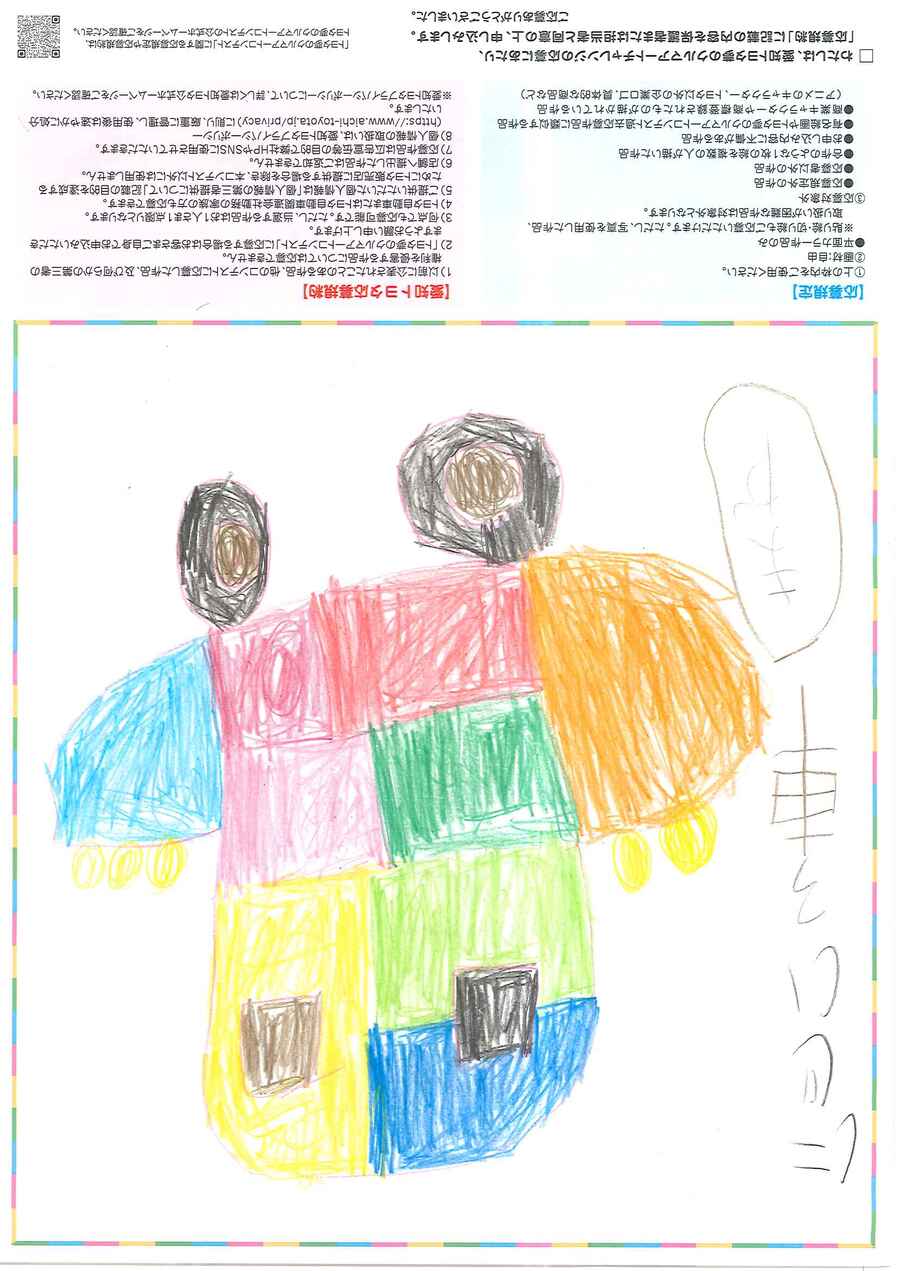 車
【応募規定】
①上の枠内をご使用ください。
②画材:自由
●平面カラー作品のみ
※貼り絵・切り絵もご応募いただけます。ただし、写真を使用した作品、
取り扱いが困難な作品は対象外となります。
③応募対象外
●応募規定外の作品
●応募者以外の作品
●合作のような1枚の絵を複数の人が描いた作品
●お申し込み内容に不備がある作品
●有名絵画やトヨタ夢のクルマアートコンテスト過去応募作品に類似する作品
●商業キャラクターや商標登録されたものが描かれている作品
(アニメのキャラクター、トヨタ以外の企業ロゴ、具体的な商品など)
【愛知トヨタ応募規約】
1)以前に公表されたことのある作品、他のコンテストに応募した作品、及び何らかの第三者の
権利を侵害する作品については応募できません。
2)「トヨタ夢のクルマアートコンテスト」に応募する場合はお客さまご自身でお申込みいただき
ますようお願い申し上げます。
3)何点でも応募可能です。ただし、当選する作品はお1人さま1点限りとなります。
4)トヨタ自動車またはトヨタ自動車関連会社勤務の家族の方も応募できます。
5)ご提供いただいた個人情報は「個人情報の第三者提供について」記載の目的を達成する
ためにトヨタ販売店に提供する場合を除き、本コンテスト以外には使用しません。
6)店舗へ提出した作品はご返却できません。
7)応募作品は広告宣伝等の目的で弊社HPやSNSに使用させていただきます。
8)個人情報の取扱いは、愛知トヨタプライバシーポリシー
(https://www.aichi-toyota.jp/privacy)に則り、厳重に管理し、使用後は速やかに処分
いたします。
※愛知トヨタプライバシーポリシーについて、詳しくは愛知トヨタ公式ホームページをご確認ください。
□わたしは、愛知トヨタ夢のクルマアートチャレンジの応募にあたり、
「応募規約」に記載の内容を保護者または担当者と同意の上、申し込みします。
ご応募ありがとうございました。
「トヨタ夢のクルマアートコンテスト」に関する応募規定や応募規約は、
トヨタ夢のクルマアートコンテストの公式ホームページをご確認ください。